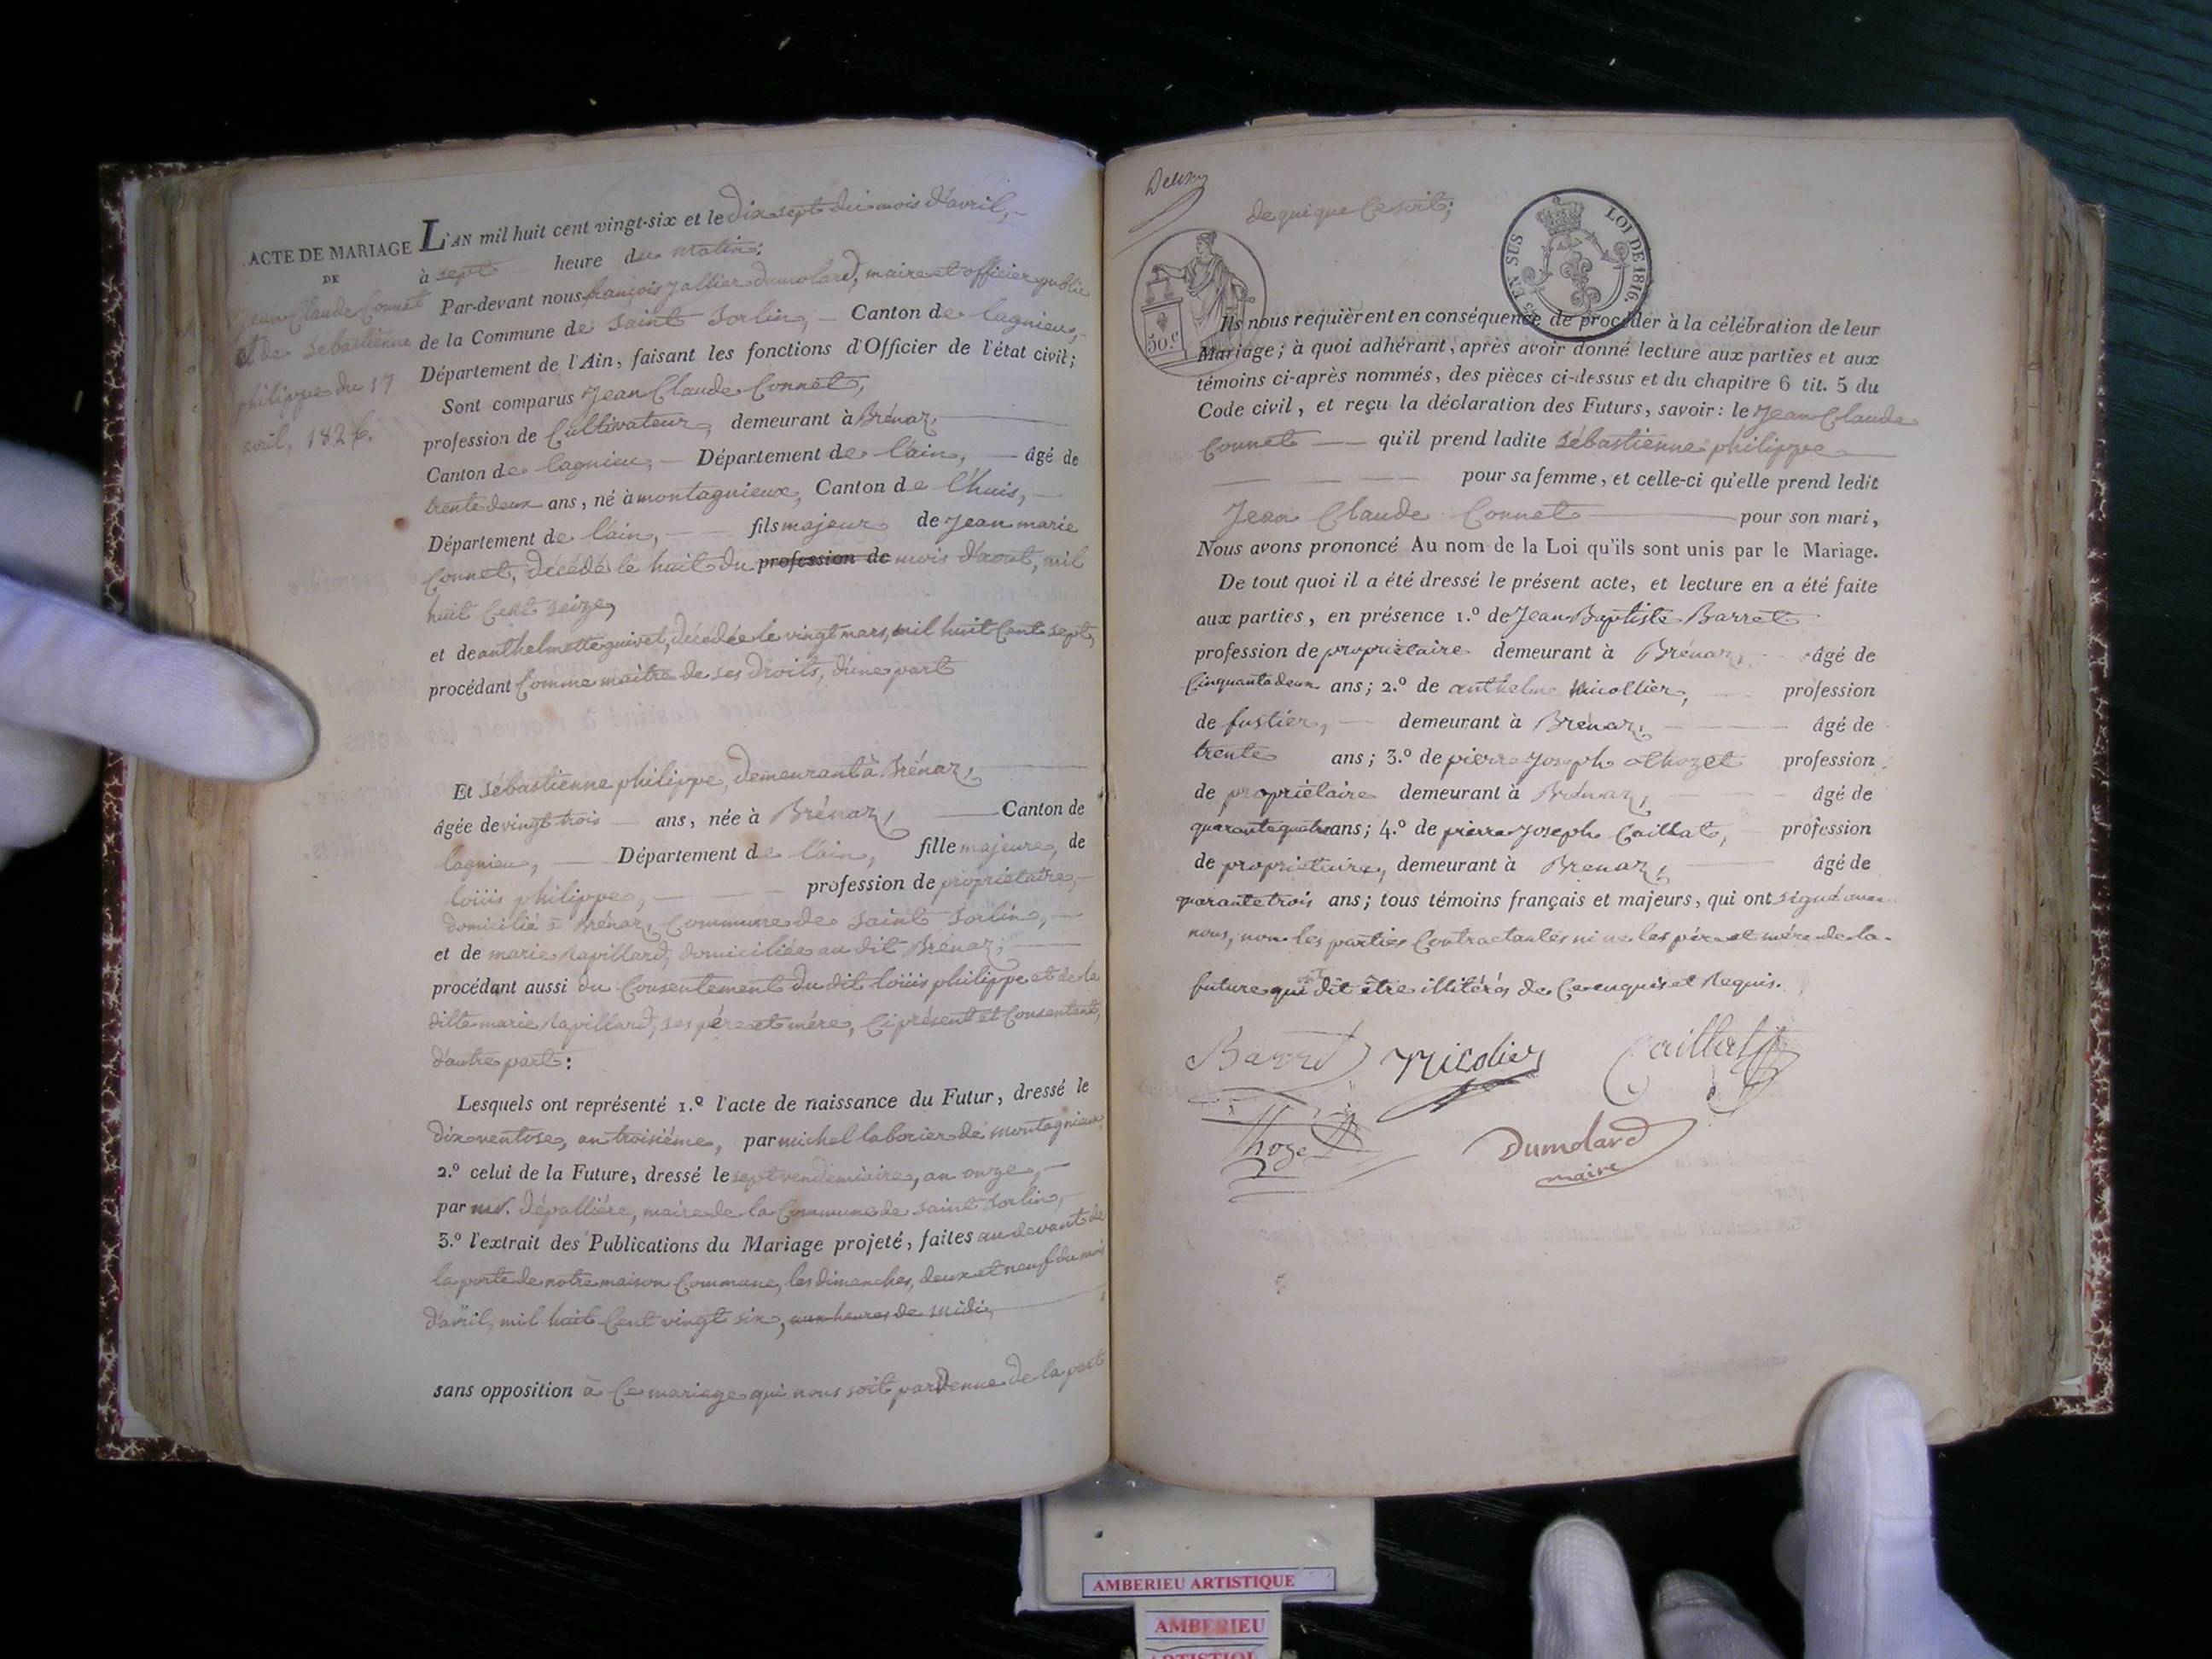 ACTE DE MARIAGE
DE
Jean Claude Connet
et de Sébastienne
philippe du 17
avril, 1826.
L'AN mil huit cent vingt-six et le dix sept du mois d'avril,
à sept heure du matin:
Par-devant nous françois Jallier dumolard, maire et officier public
de la Commune de saint Sorlin, Canton de lagnieu,
Département de l'Ain, faisant les fonctions d'Officier de l'état civil;
Sont comparus Jean Claude Connet,
profession de Cultivateur, demeurant à Brénaz,
Canton de lagnieu, Département de l'ain, âgé de
trente deux ans, né à montagnieux, Canton de l'huis,
Département de l'ain, fils majeur de Jean marie
Connet, décédé le huit du profession de mois d'aout, mil
huit Cent seize,
et de anthelmette guivet, décédée le vingt mars, mil huit Cent sept,
procédant Comme maitre de ses droits, d'une part
Et Sébastienne philippe, demeurant à Brénaz,
âgée de vingt trois ans, née à Brénaz, Canton de
lagnieu, Département de l'ain, fille majeure, de
loüis philippe, profession de propriétaire,
domicilié à Brénaz, Commune de saint Sorlin,
et de marie Rapillard, domiciliée au dit Brénaz;
procédant aussi du Consentement du dit loüis philippe et de la
ditte marie Rapillard, ses père et mère, Ci présent et Consentant,
d'autre part:
Lesquels ont représenté 1.º l'acte de naissance du Futur, dressé le
dix ventose, an troisième, par michel laborier de montagnieux,
2.º celui de la Future, dressé le sept vendemiaire, an onze,
par mr. dépallière, maire de la Commune de saint Sorlin,
3.º l'extrait des Publications du Mariage projeté, faites au devant de
la porte de notre maison Commune, les dimanches, deux et neuf du mois
d'avril, mil huit Cent vingt six, aux heures de midi,
sans opposition à Ce mariage qui nous soit parvenue de la part
Deux
de qui que Ce soit;
EN SUS
LOI DE 1816.
50.c
Ils nous requièrent en conséquence de procéder à la célébration de leur
Mariage; à quoi adhérant, après avoir donné lecture aux parties et aux
témoins ci-après nommés, des pièces ci-dessus et du chapitre 6 tit. 5 du
Code civil, et reçu la déclaration des Futurs, savoir: le Jean Claude
Connet qu'il prend ladite Sébastienne philippe
pour sa femme, et celle-ci qu'elle prend ledit
Jean Claude Connet pour son mari,
Nous avons prononcé Au nom de la Loi qu'ils sont unis par le Mariage.
De tout quoi il a été dressé le présent acte, et lecture en a été faite
aux parties, en présence 1.º de Jean Baptiste Barret
profession de propriétaire demeurant à Brénaz, âgé de
Cinquante deux ans; 2.º de anthelme Nicollier, profession
de fustier, demeurant à Brénaz, âgé de
trente ans; 3.º de pierre Joseph thozet profession
de propriétaire demeurant à Brénaz, âgé de
quarante quatre ans; 4.º de pierre Joseph Caillat, profession
de propriétaire, demeurant à Brenaz, âgé de
quarante trois ans; tous témoins français et majeurs, qui ont signé avec
nous, non les parties Contractantes ni les père et mère de la
future qui ont dit être illitérés de Ce enquis et Requis.
Barret Nicolier Caillat
Thozet Dumolard
maire
AMBERIEU ARTISTIQUE
AMBERIEU
ARTISTIQUE